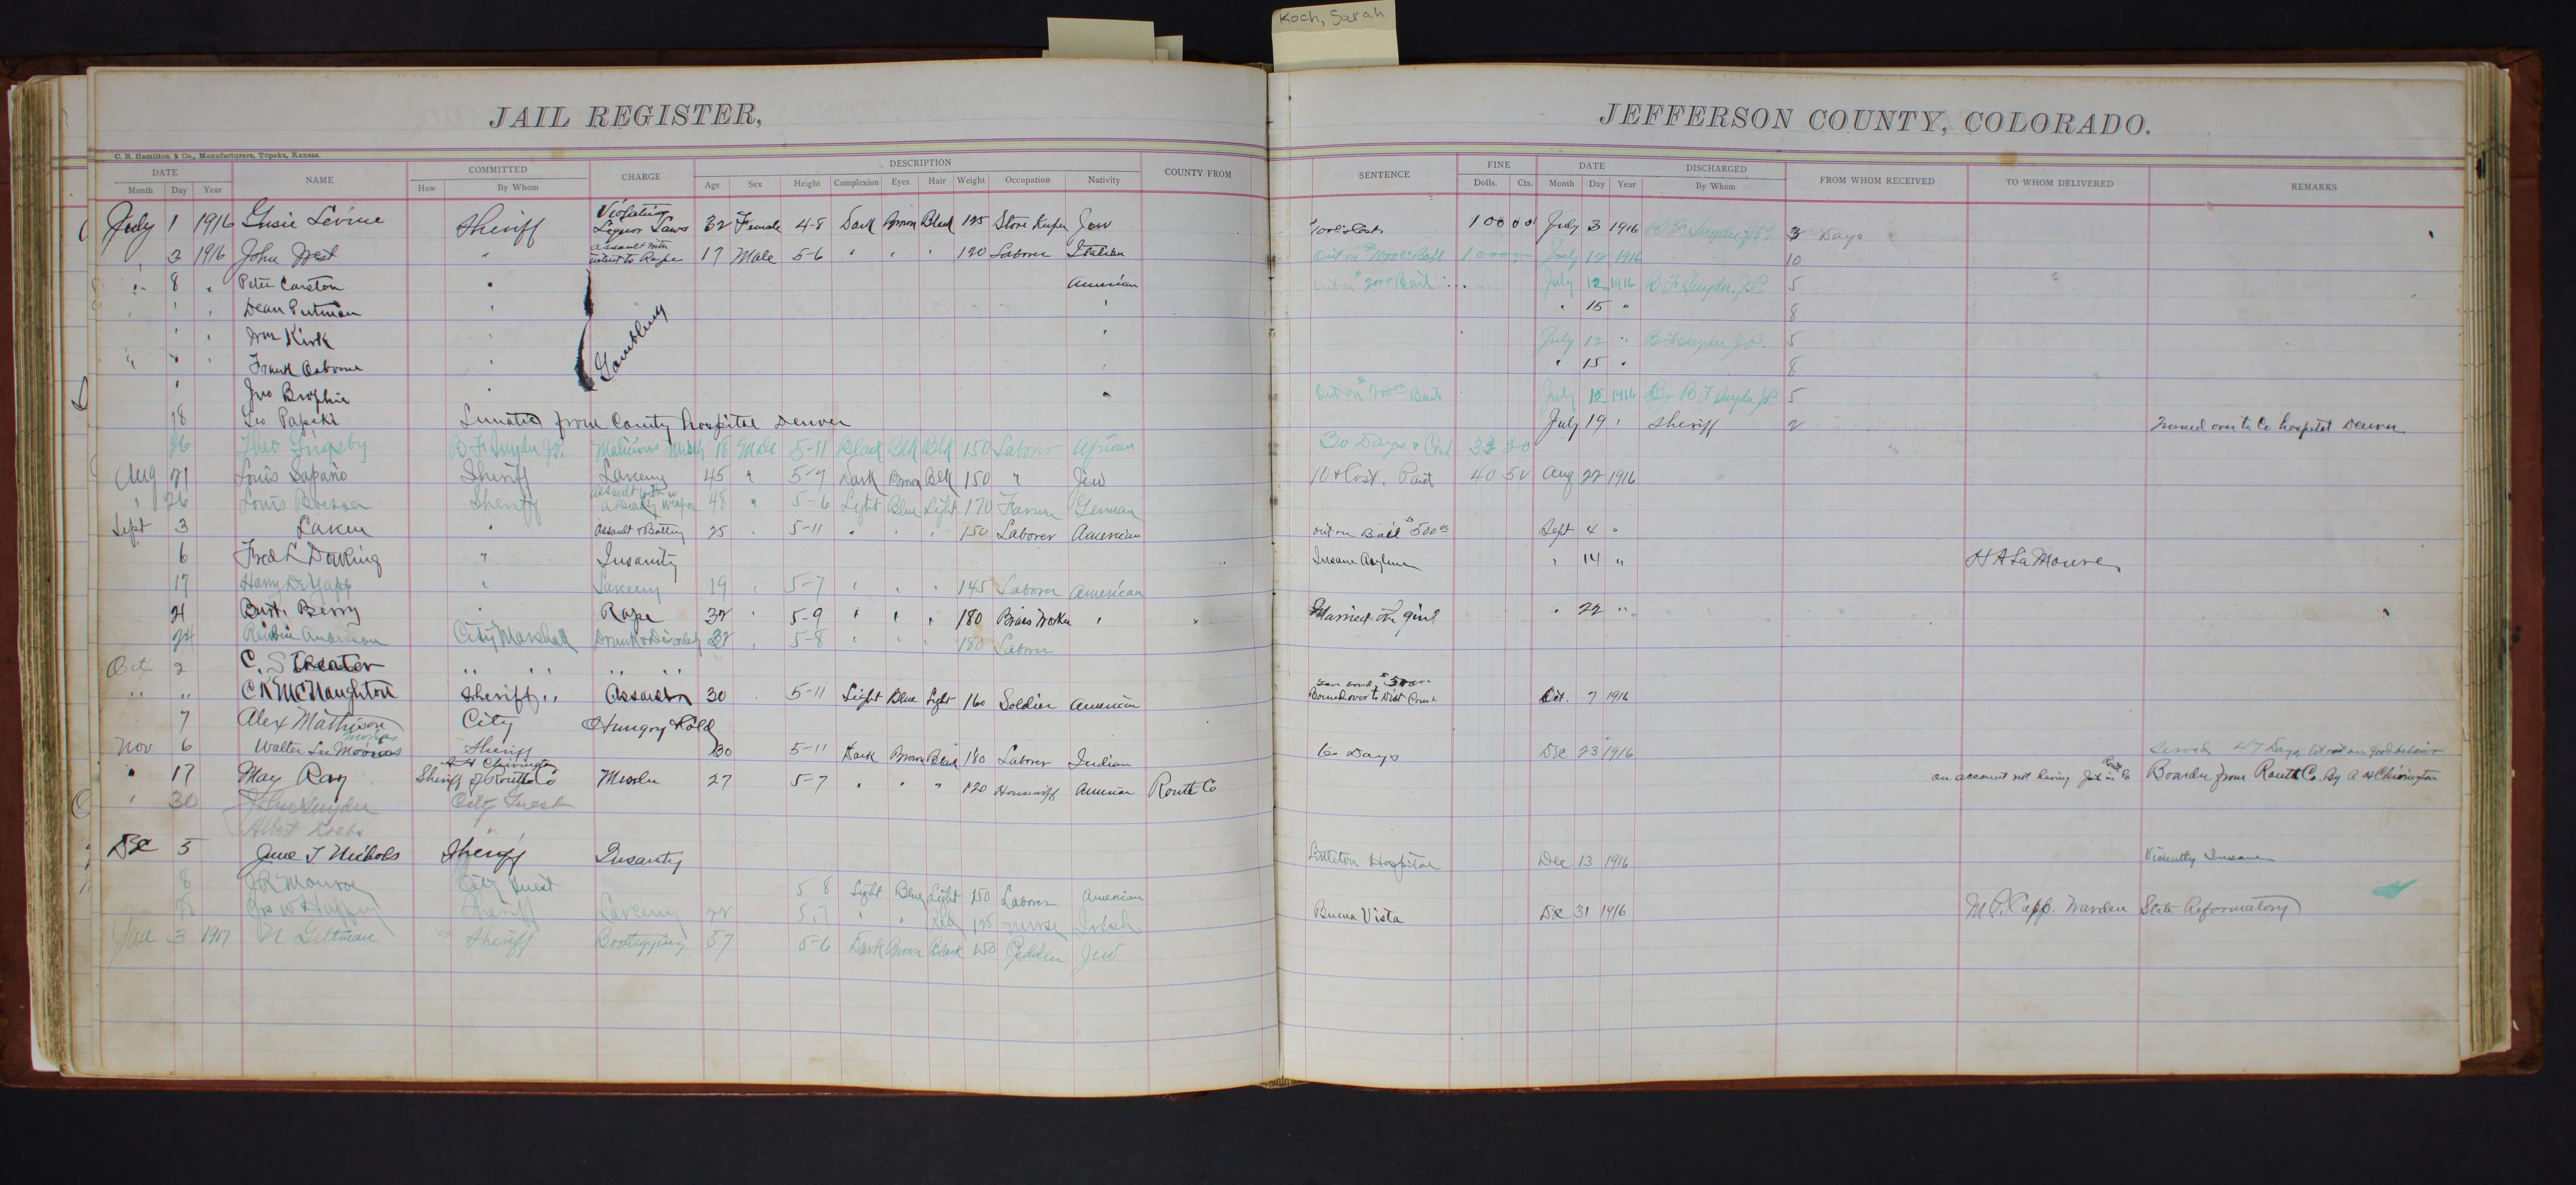 Koch, Sarah
JAIL REGISTER, JEFFERSON COUNTY, COLORADO.
C. B. Hamilton & Co., Manufacturers, Topeka, Kansas.
DATE NAME COMMITTED CHARGE DESCRIPTION COUNTY FROM SENTENCE FINE DATE DISCHARGED FROM WHOM RECEIVED TO WHOM DELIVERED REMARKS
Month Day Year How By Whom Age Sex Height Complexion Eyes Hair Weight Occupation Nativity Dolls. Cts. Month Day Year By Whom
July 1 1916 Gusie Levine Sheriff Violating Liquor Laws 32 Female 4-8 Dark Brown Black 125 Store Keeper Jew 100 00 July 3 1916 B F Snyder J.P. 3 Days
" 3 1916 John West " assault with intent to Rape 17 Male 5-6 " " " 120 Laborer Italian Out on $1000 Bail 1000 July 12 1916 10
" 8 " Peter Carston " Gambling American Bail July 12 1916 B F Snyder J.P. 5
" " " Dean Putman " " " 15 " 8
" " Wm Kirk " " July 12 " B F Snyder J.P. 5
" " " Frank Osborne " " " 15 " 8
" Jno Brophie " " Out on $700 Bail July 12 1916 By B F Snyder J.P. 5
18 Geo Papeki Lunatic from County hospital Denver July 19 " Sheriff 2 Turned over to Co hospital Denver
26 Theo Grigsby B F Snyder J.P. Malicious Misch 18 Male 5-11 Black Blk Blk 150 Laborer African 30 Days & Cost
Aug 21 Louis Sapario Sheriff Larceny 45 " 5-7 Dark Brown Blk 150 " Jew 10 & Cost. Paid 40 50 Aug 22 1916
" 26 Louis Sheriff assault with a Deadly weapon 48 " 5-6 Light Blue Light 170 Farmer German
Sept 3 Laken " Assault & Battery 25 " 5-11 " " " 150 Laborer American out on Bail $500 00 Sept 4 "
6 Fred L Dowling " Insanity Insane Asylum " 14 " H A LaMoure
17 Harry DeYapp " Larceny 19 " 5-7 " " " 145 Laborer American
21 Burt Berry " Rape 32 " 5-9 " " " 180 Brass Worker " Married the girl " 22 "
24 Reubin Anderson City Marshall Drunk & Disorderly 32 " 5-8 " " " 180 Laborer
Oct 2 C. Streater " " " "
" " C K McNaughton Sheriff " Assault 30 " 5-11 Light Blue Light 160 Soldier American Bound over to Dist Court Oct. 7 1916
7 Alex Mathison City Hungry & Cold
Nov 6 Walter Lee Moonas Monas Sheriff 30 5-11 Dark Brown Black 180 Laborer Indian 60 Days Dec 23 1916 Served 47 Days let out on good behavior
" 17 May Ray A H Chivington Sheriff of Routt Co Murder 27 5-7 " " " 120 Housewiff American Routt Co on account not having Jail in Routt Co Boarder from Routt Co. By A H Chivington
" 30 John Snyder City Guest
Albert Krebs "
Dec 5 June T Nichols Sheriff Insanity Littleton Hospital Dec 13 1916 Violently Insane
8 J R Monroe City Guest 5 8 Light Blue Light 150 Laborer American
28 Jos W Sheriff Larceny 22 5,7 " " Red 125 nurse Irish Buena Vista Dec 31 1916 M P. Capp. Warden State Reformatory
Jan 3 1917 N Giltman Sheriff Bootlegging 57 5-6 Dark Brown Black 150 Peddler Jew